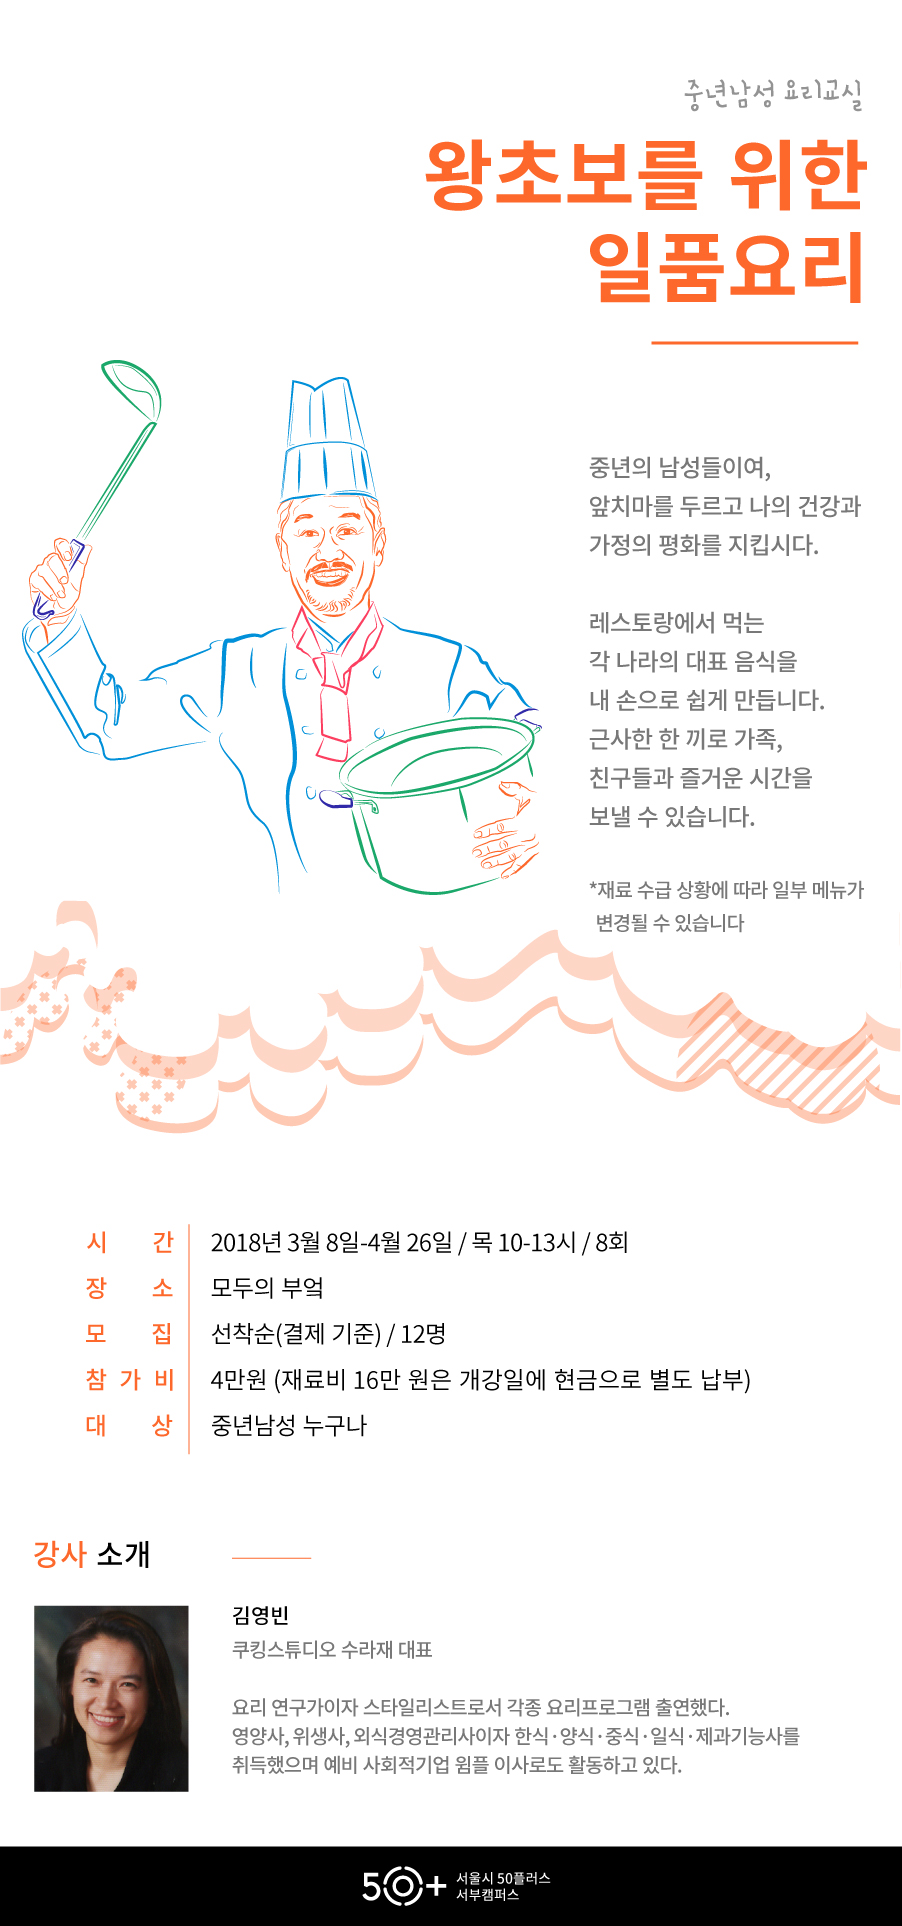 중년남성 요리교실
왕초보를 위한
일품요리
중년의 남성들이여,
앞치마를 두르고 나의 건강과
가정의 평화를 지킵시다.
레스토랑에서 먹는
각 나라의 대표 음식을
내 손으로 쉽게 만듭니다.
근사한 한 끼로 가족,
친구들과 즐거운 시간을
보낼 수 있습니다.
*재료 수급 상황에 따라 일부 메뉴가
변경될 수 있습니다
시 간 2018년 3월 8일-4월 26일 / 목 10-13시 / 8회
장 소 모두의 부엌
모 집 선착순(결제 기준) / 12명
참 가 비 4만원 (재료비 16만 원은 개강일에 현금으로 별도 납부)
대 상 중년남성 누구나
강사 소개
김영빈
쿠킹스튜디오 수라재 대표
요리 연구가이자 스타일리스트로서 각종 요리프로그램 출연했다.
영양사, 위생사, 외식경영관리사이자 한식·양식·중식·일식·제과기능사를
취득했으며 예비 사회적기업 윔플 이사로도 활동하고 있다.
50+ 서울시 50플러스
서부캠퍼스